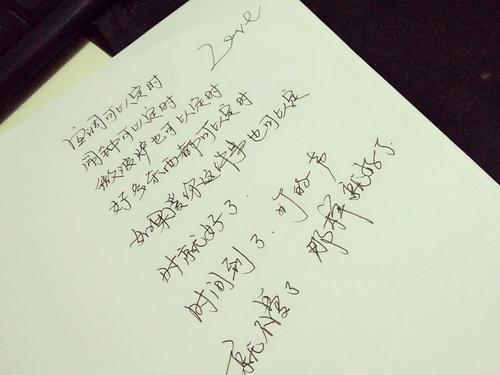 Love
空调可以定时
闹钟可以定时
微波炉也可以定时
好多东西都可以定时
如果爱你这件事也可以定
时就好了.
时间到了. 叮的声
就不爱了 那样就好了